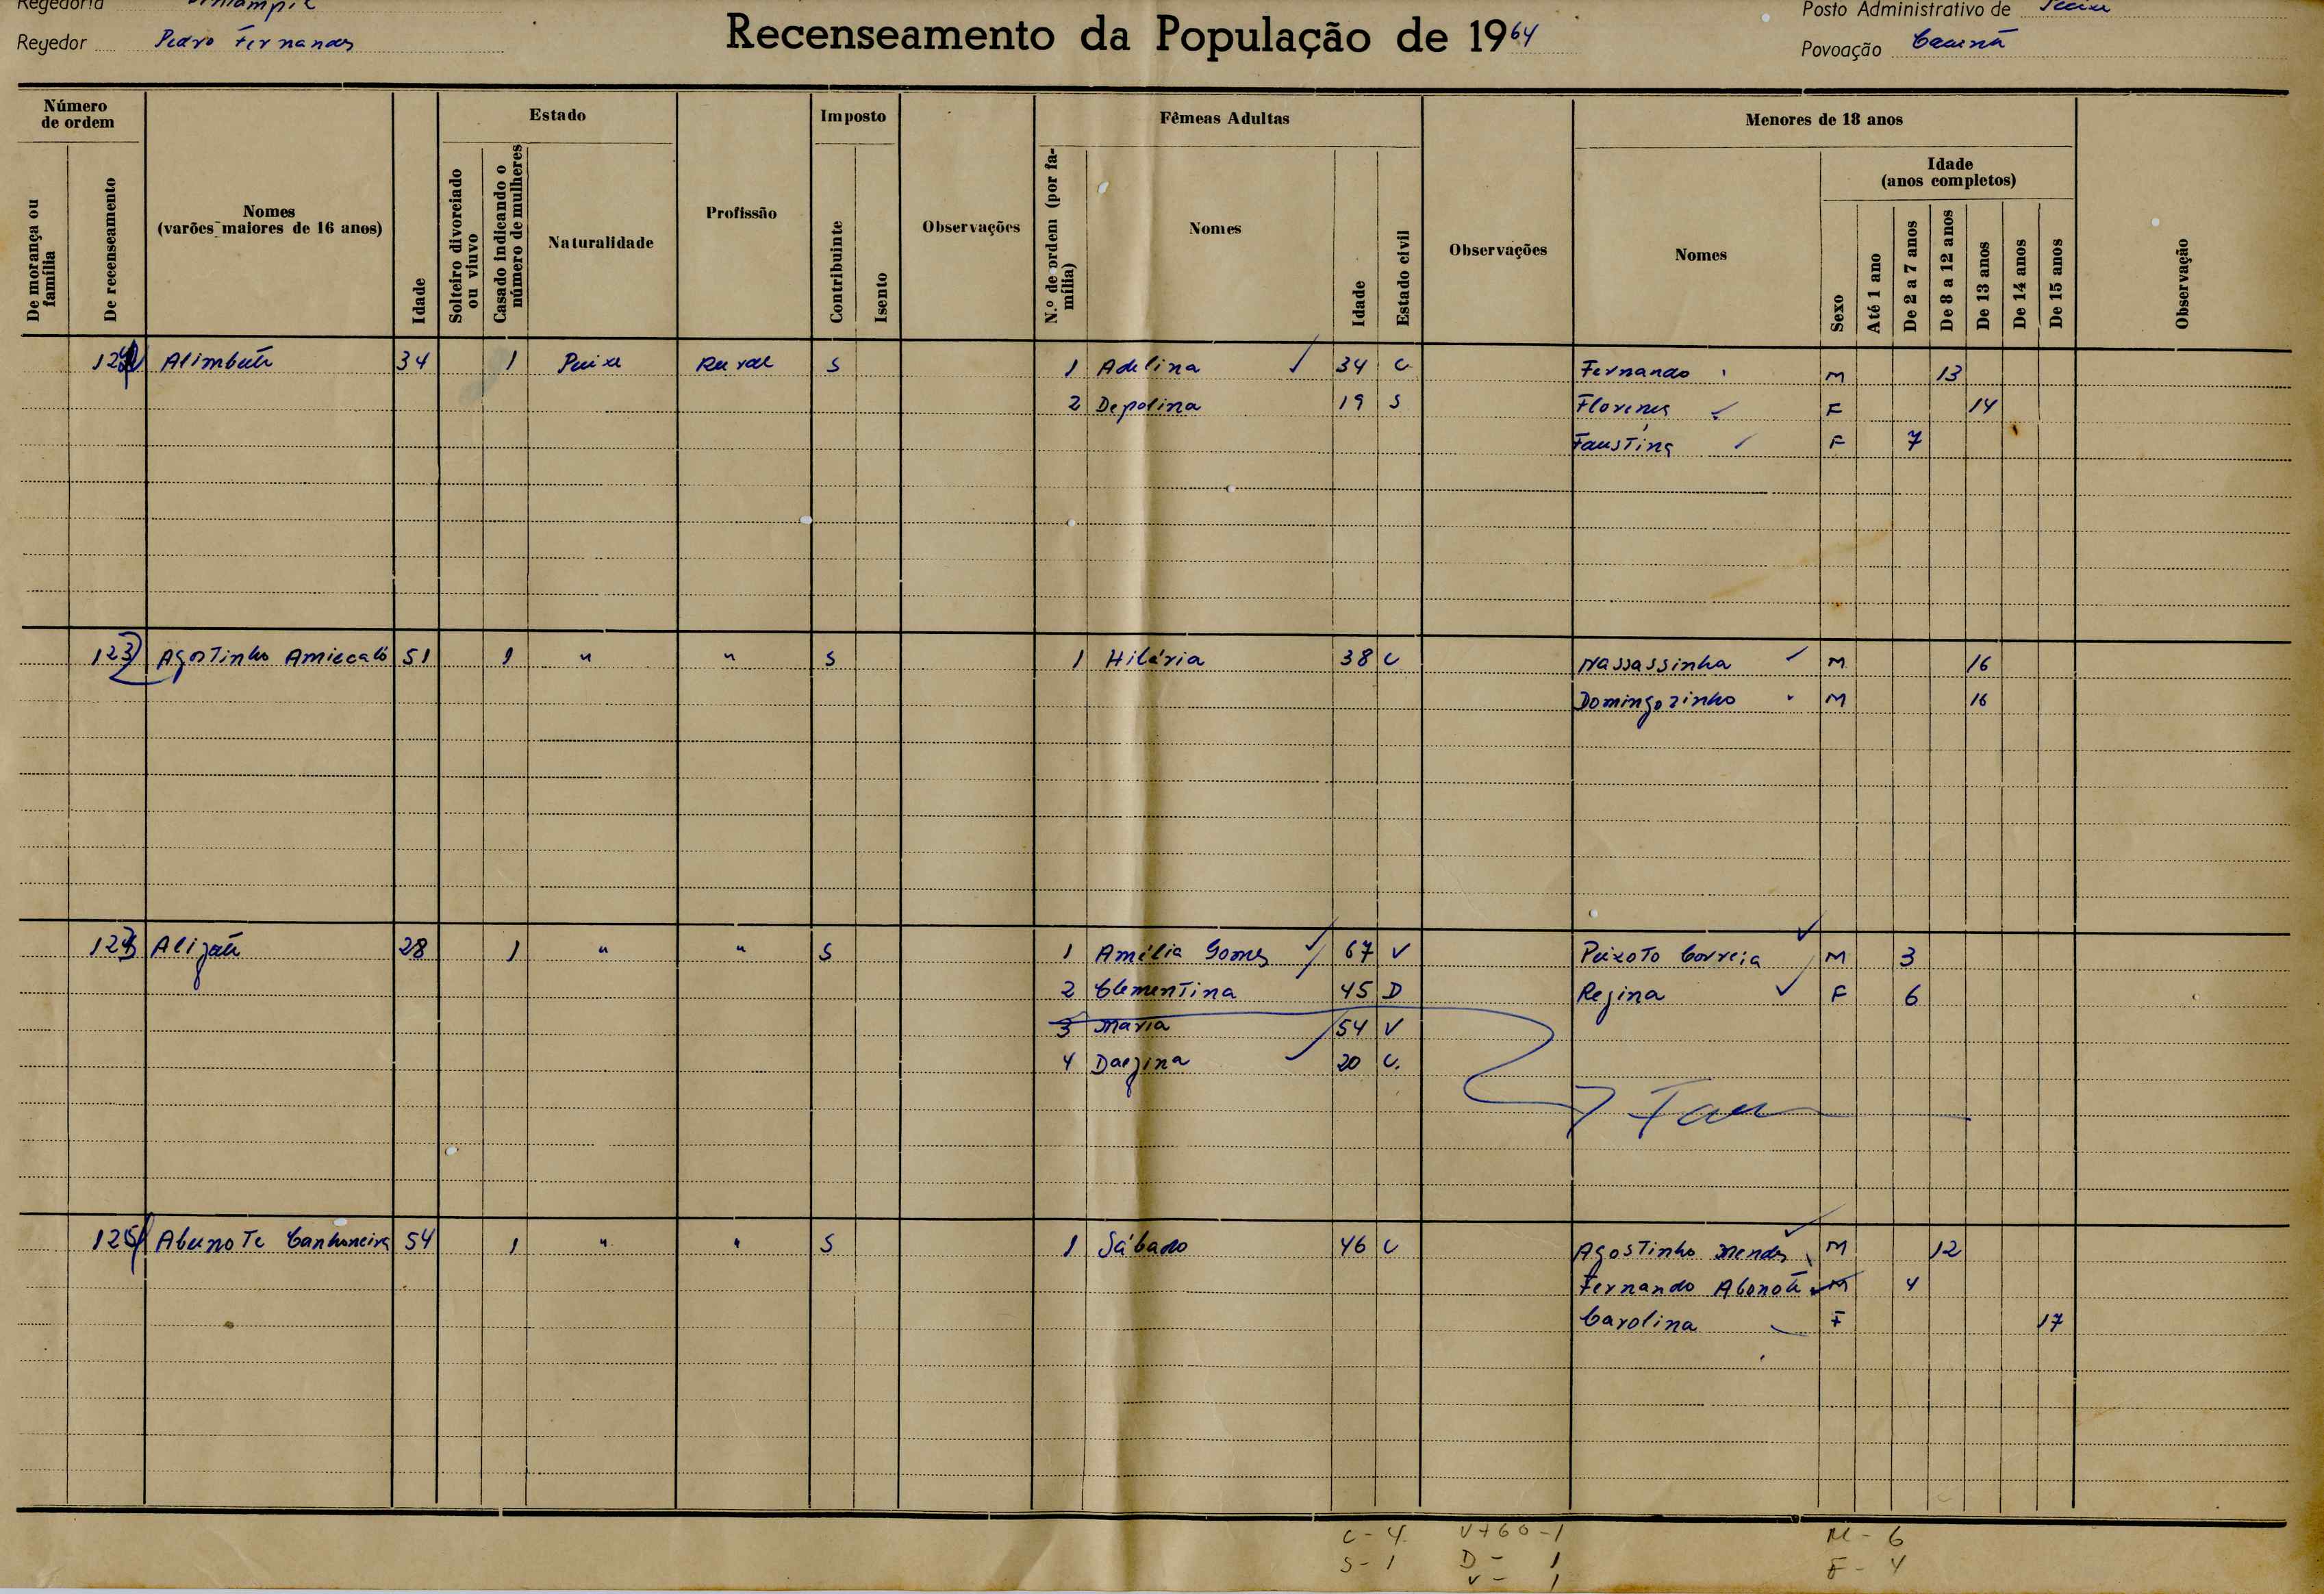 Regedoria
Posto Administrativo de
Regedor Pedro Fernandes
Recenseamento da População de 1964
Povoação
Número de ordem
De morança ou família
De recenseamento
Nomes (varões maiores de 16 anos)
Idade
Estado
Solteiro divorciado ou viuvo
Casado indicando o número de mulheres
Naturalidade
Profissão
Imposto
Contribuinte
Isento
Observações
Fêmeas Adultas
N.º de ordem (por família)
Nomes
Idade
Estado civil
Observações
Menores de 18 anos
Nomes
Sexo
Idade (anos completos)
Até 1 ano
De 2 a 7 anos
De 8 a 12 anos
De 13 anos
De 14 anos
De 15 anos
Observação
34 1 Rural S 1 Adelina 34 C Fernando M 13
2 Depolina 19 S F 14
Faustina F 7
123 Agostinho 51 1 " " S 1 Hilária 38 C Nassassinha M 16
Domingozinho M 16
28 1 " " S 1 Amélia Gomes 67 V Peixoto Correia M 3
2 Clementina 45 D Regina F 6
3 Maria 54 V
4 20 C.
125 Canhoneira 54 1 " " S 1 Sábado 46 C Agostinho Mendes M 12
Fernando M 4
Carolina F 17
C - 4 V+60 - 1 M - 6
S - 1 D - 1 F - 4
V - 1